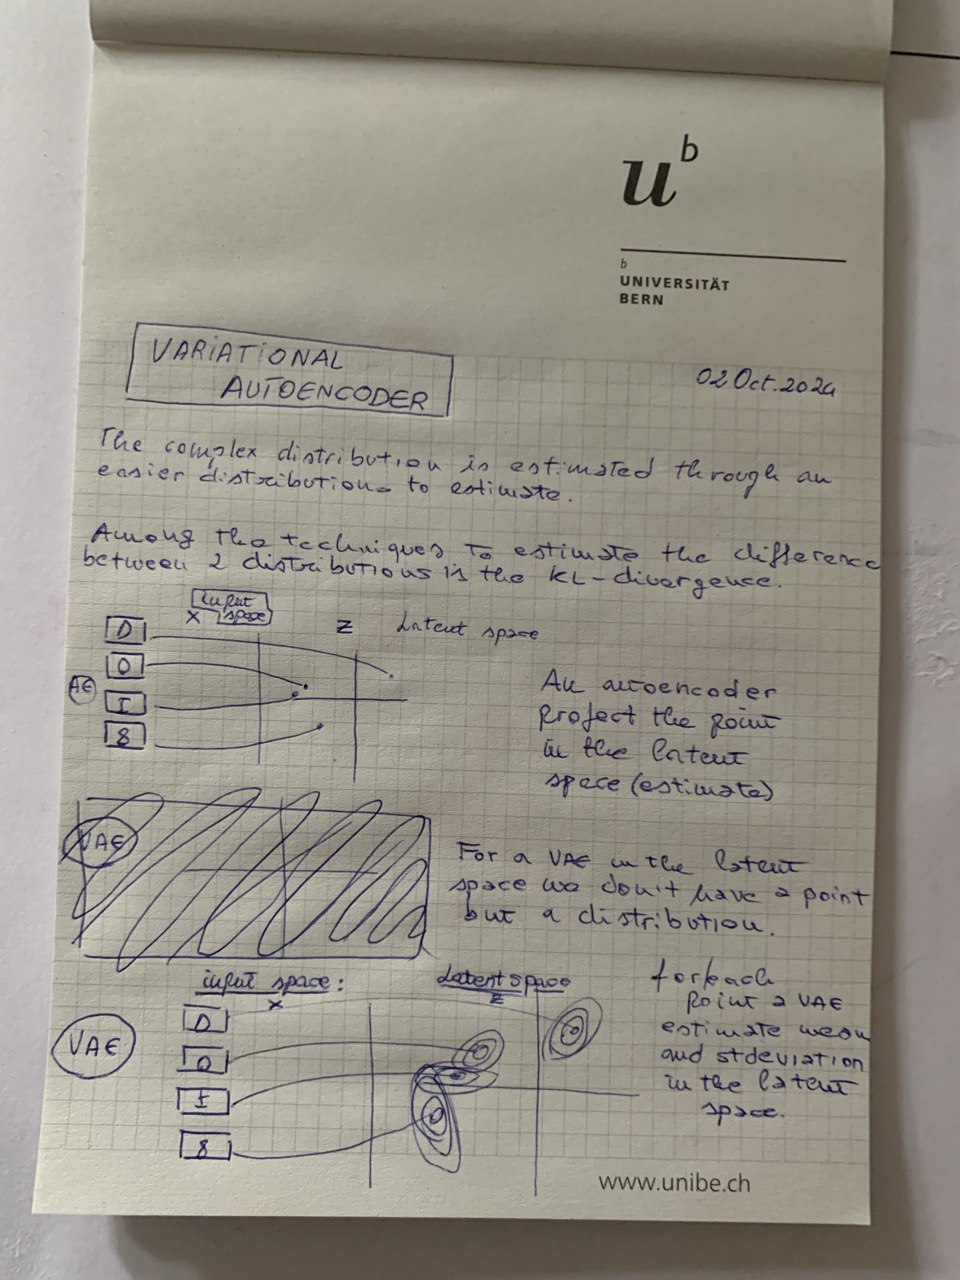 u
b
b
UNIVERSITÄT
BERN
VARIATIONAL
AUTOENCODER
02 Oct. 2024
The complex distribution is estimated through an
easier distribution to estimate.
Among the techniques to estimate the difference
between 2 distributions is the KL-divergence.
input
space
X
Z
Latent space
D
O
AE
I
8
An autoencoder
project the point
in the latent
space (estimate)
VAE
For a VAE in the latent
space we don't have a point
but a distribution.
input space:
X
Latent space
Z
for each
point a VAE
estimate mean
and st deviation
in the latent
space.
VAE
D
O
I
8
www.unibe.ch